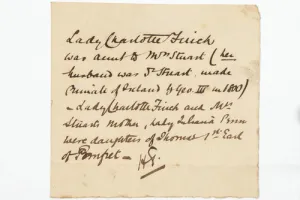 Lady Charlotte Finch
was aunt to Mrs Stuart (her
husband was Dr Stuart, made
Primate of Ireland by Geo. III in 1800)
– Lady Charlotte Finch and Mrs
Stuarts Mother, Lady Juliana Penn
were daughters of Thomas 1st Earl
of Pomfret –